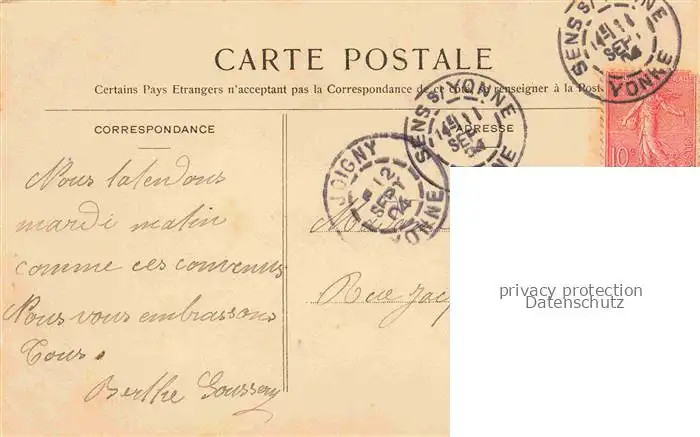 CARTE POSTALE
Certains Pays Etrangers n'acceptant pas la Correspondance de ce côté, se renseigner à la Post
CORRESPONDANCE
ADRESSE
SENS S/ YONNE
14 11
SEPT
04
YONNE
SENS S/ YONNE
14 11
SEPT
04
YONNE
JOIGNY
12
SEPT
04
YONNE
10c
Nous t'atendons
mardi matin
comme ces convenus
Nous vous embrassons
Tous.
Berthe
Rue Jacq
privacy protection
Datenschutz